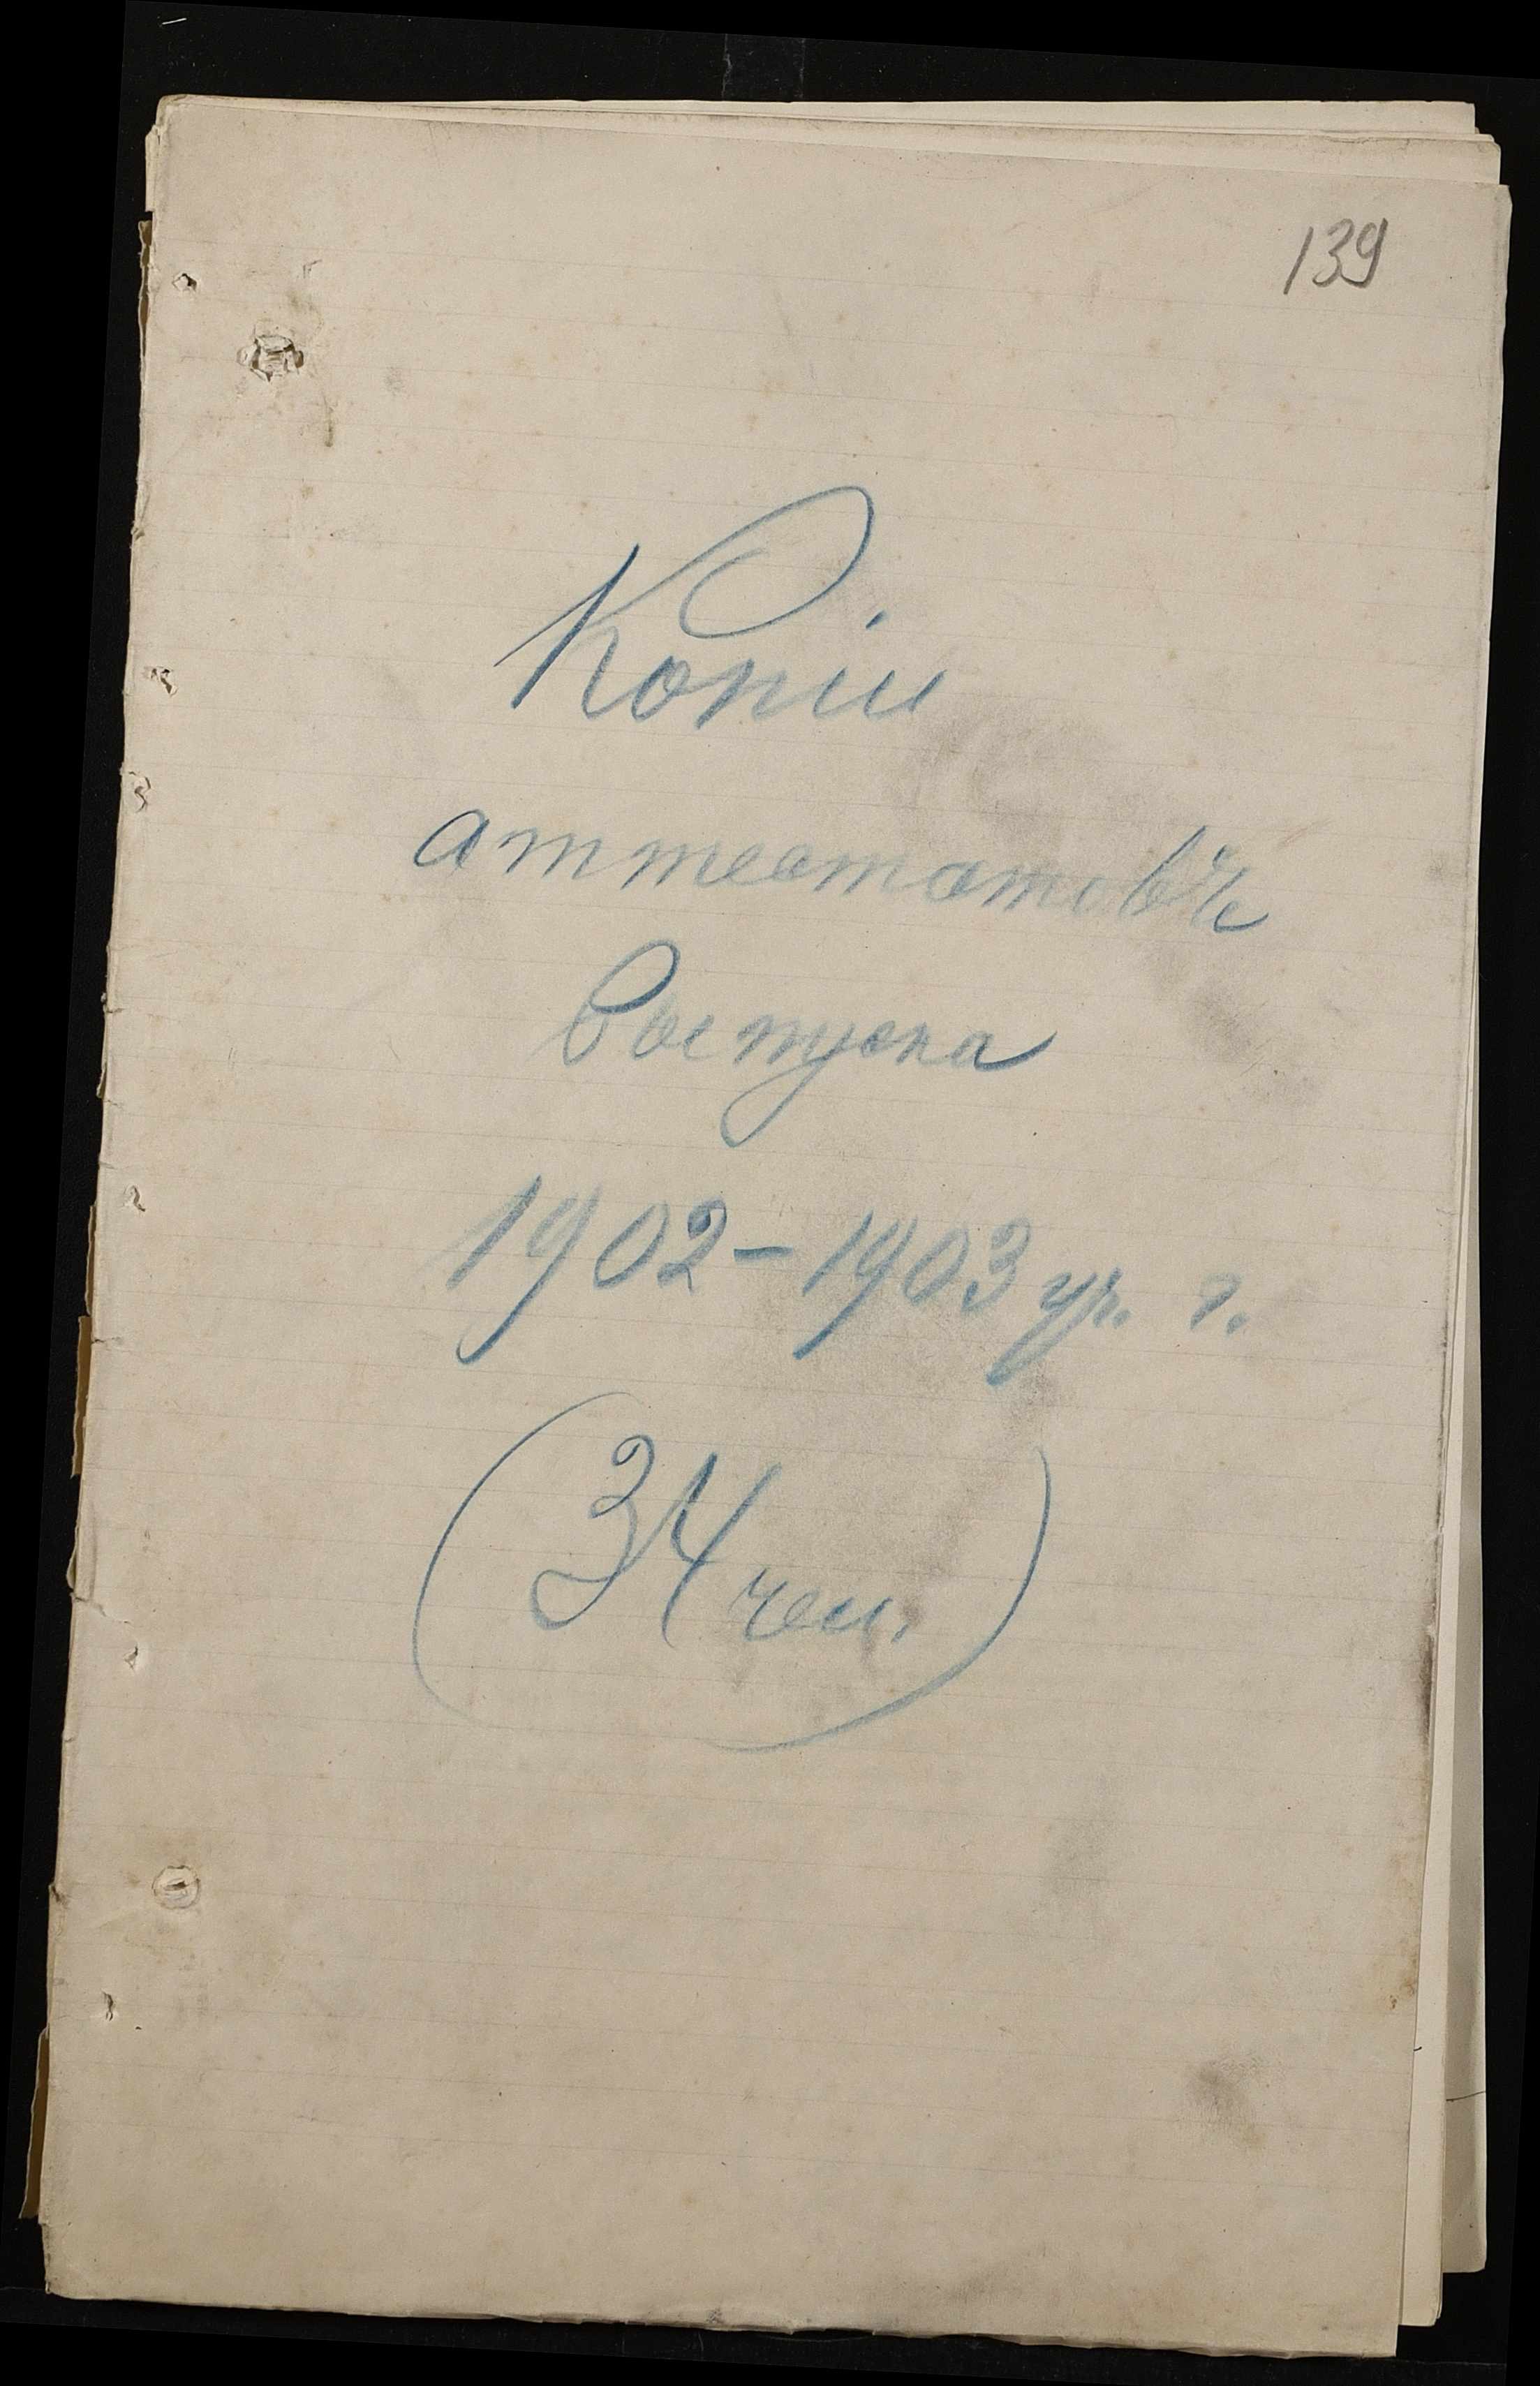 139
Копіи
аттестатовъ
выпуска
1902-1903 уч. г.
(34 чел.)